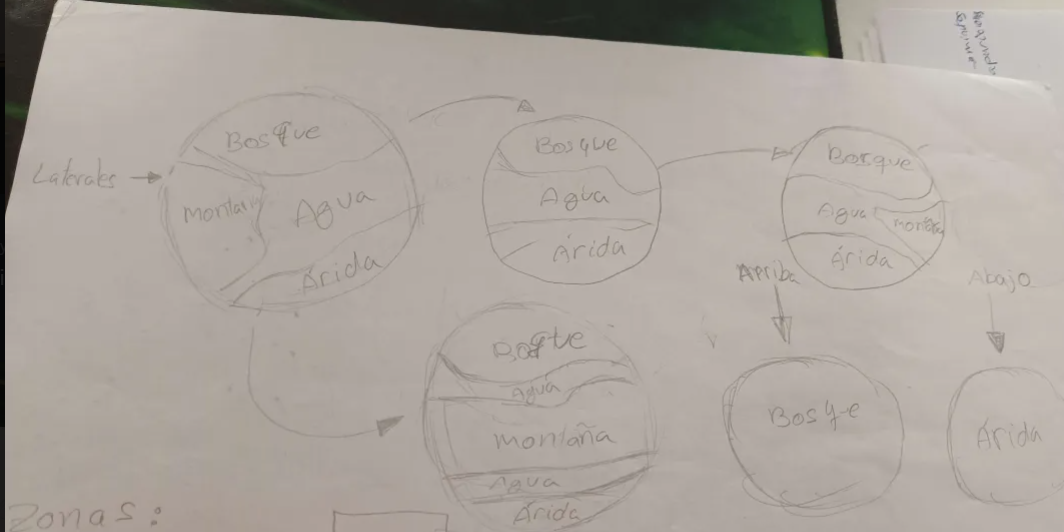 Bosque
Laterales
Montaña
Agua
Árida
Bosque
Agua
Árida
Bosque
Agua
Montaña
Árida
Arriba
Abajo
Bosque
Agua
Montaña
Agua
Árida
Bosque
Árida
Zonas: